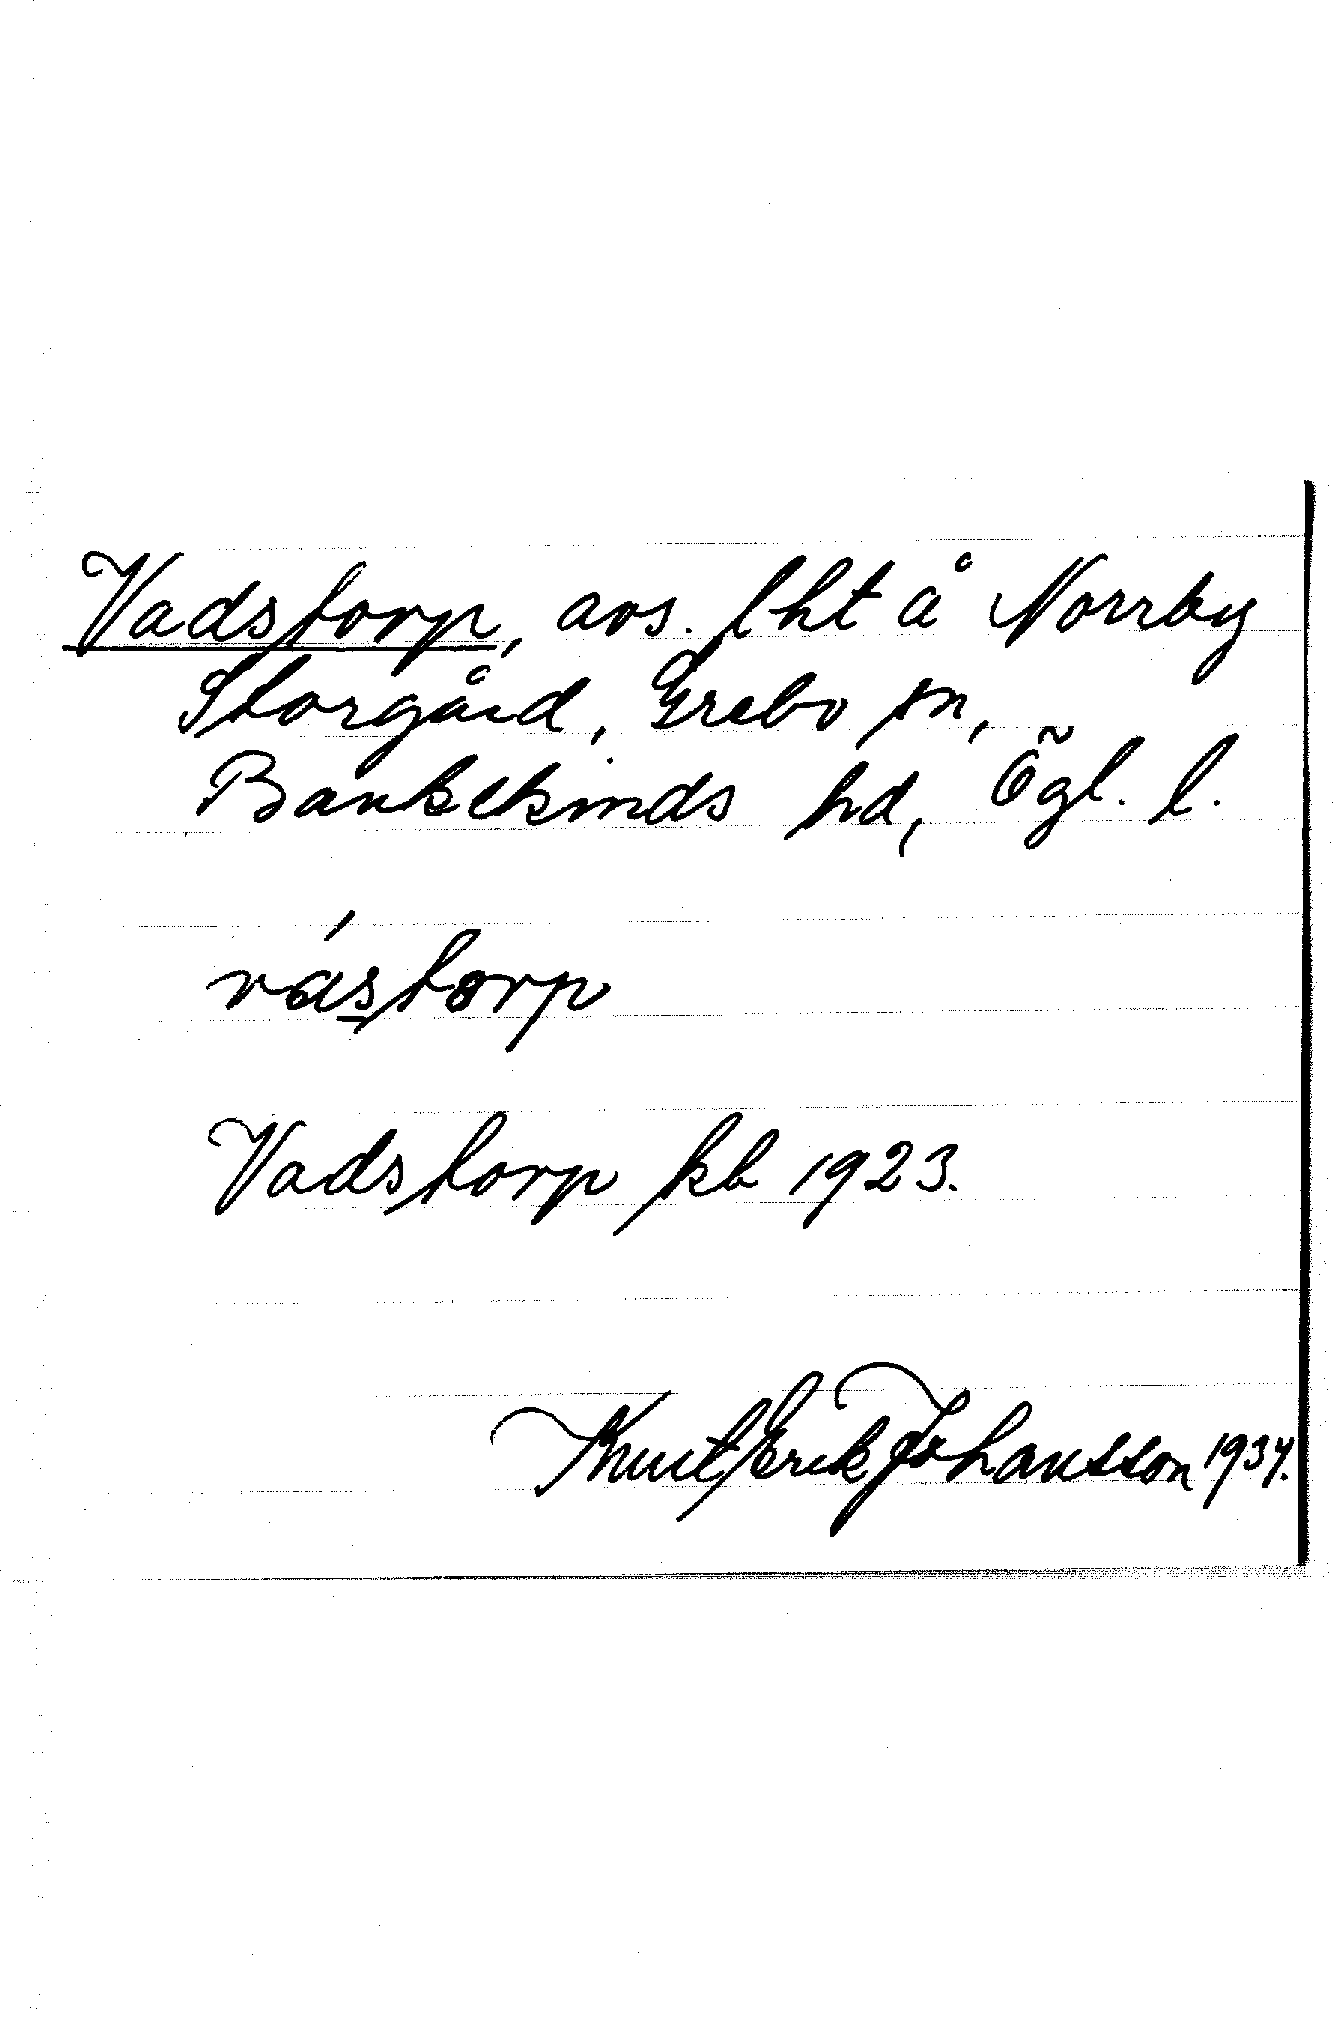 Vadstorp, avs. lht å Norrby
Storgård, Grebo sn,
Bankekinds hd, Ögl. l.
västorp
Vadstorp kb 1923.
Knut Erik Johansson 1934.